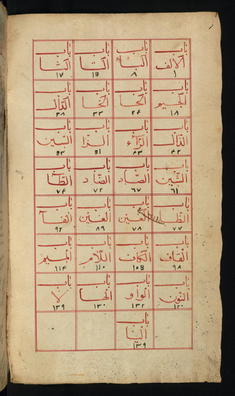 باب باب باب باب
الالف البا التا الثا
١ ٨ ١٥ ١٧
باب باب باب باب
الجيم الحا الخا الدال
١٨ ٢٤ ٣٣ ٣٨
باب باب باب باب
الذال الراء الزا السين
٤٢ ٤٣ ٥١ ٥٣
باب باب باب باب
الشين الصاد الضاد الطا
٦١ ٦٧ ٧٢ ٧٤
باب باب باب باب
الظا العين الغين الفا
٧٧ ٧٨ ٨٩ ٩٢
باب باب باب باب
القاف الكاف اللام الميم
٩٨ ١٠٥ ١١٠ ١١٤
باب باب باب باب
النون الواو الها لا
١٢٠ ١٣٢ ١٣٩
باب
اليا
١٣٩